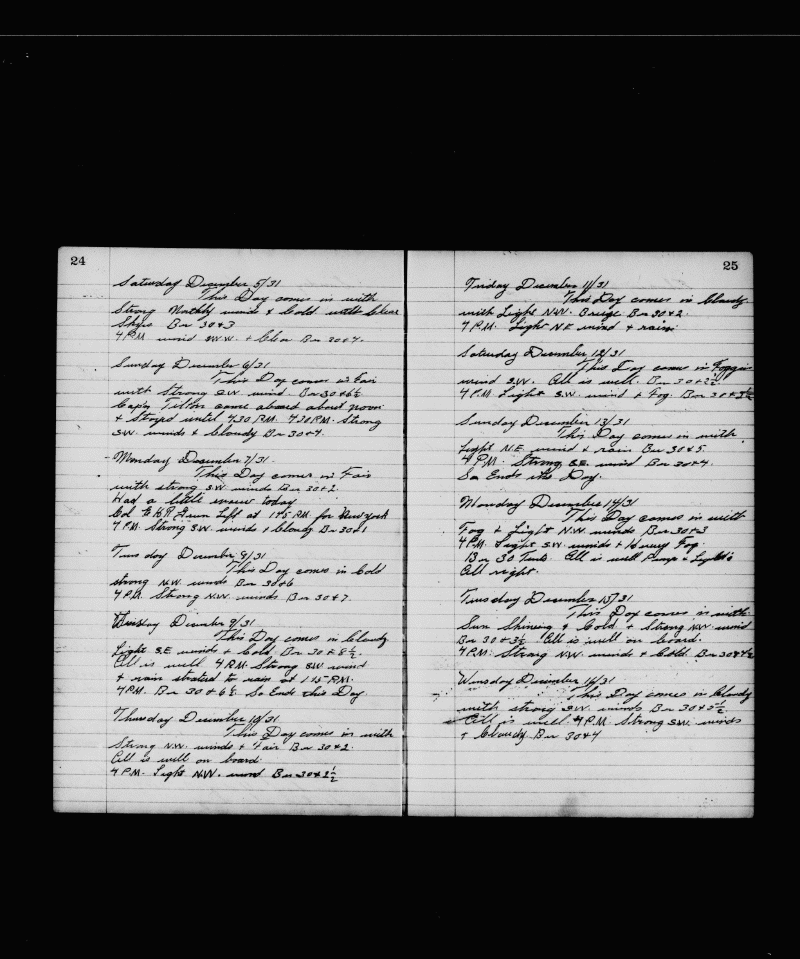 24
Saturday December 5/31
This Day comes in with
Strong Northly winds & Cold with Clear
Skys Bar 30&3
4 PM wind N.W. & Clear Bar 30&4.
Sunday December 6/31
This Day comes in Fair
with Strong S.W. wind. Bar 30&6½
Cap'n Tilton came aboard about noon
& Stayed until 4.30 P.M. 4.30 P.M. Strong
S.W. winds & Cloudy Bar 30&4.
Monday December 7/31
This Day comes in Fair
with strong S.W. winds Bar 30&2.
Had a little snow today
Col. E.H.R. Green Left at 1.45 P.M. for New york
4 P.M. Strong S.W. winds & Cloudy Bar 30&1
Tuesday December 9/31
This Day comes in Cold
strong N.W. winds Bar 30&6
4 P.M. Strong N.W. winds Bar 30&7.
Wensday December 9/31
This Day comes in Cloudy
Light S.E. winds & Cold Bar 30&8½
All is well 4 P.M. Strong S.W. wind
& rain strated to rain at 1.15 P.M.
4 P.M. Bar 30&6½ So Ends this Day
Thursday December 10/31
This Day comes in with
Strong N.W. winds & Fair Bar 30&2.
All is well on board
4 P.M. Light N.W. wind Bar 30&2½
25
Friday December 11/31
This Day comes in Cloudy
with Light N.W. Breeze Bar 30&2.
4 P.M. Light N.E. wind & rain
Saturday December 12/31
This Day comes in Foggie
wind S.W. All is well. Bar 30&2½
4 P.M. Light S.W. wind & Fog. Bar 30&3½
Sunday December 13/31
This Day comes in with
Light N.E. wind & rain Bar 30&5.
4 P.M. Strong S.E. wind Bar 30&4.
So Ends the Day.
Monday December 14/31
This Day comes in with
Fog & Light N.W. winds Bar 30&3
4 P.M. Light S.W. winds & Heavy Fog.
Bar 30 Tenths All is well Pump & Lights
All right.
Tuesday December 15/31
This Day comes in with
Sun Shining & Cold & Strong N.W. wind
Bar 30&3½ All is well on board.
4 P.M. Strong N.W. winds & Cold Bar 30&4½
Wensday December 16/31
This Day comes in Cloudy
with strong S.W. winds Bar 30&5½
All is well 4 P.M. Strong S.W. winds
& Cloudy Bar 30&4